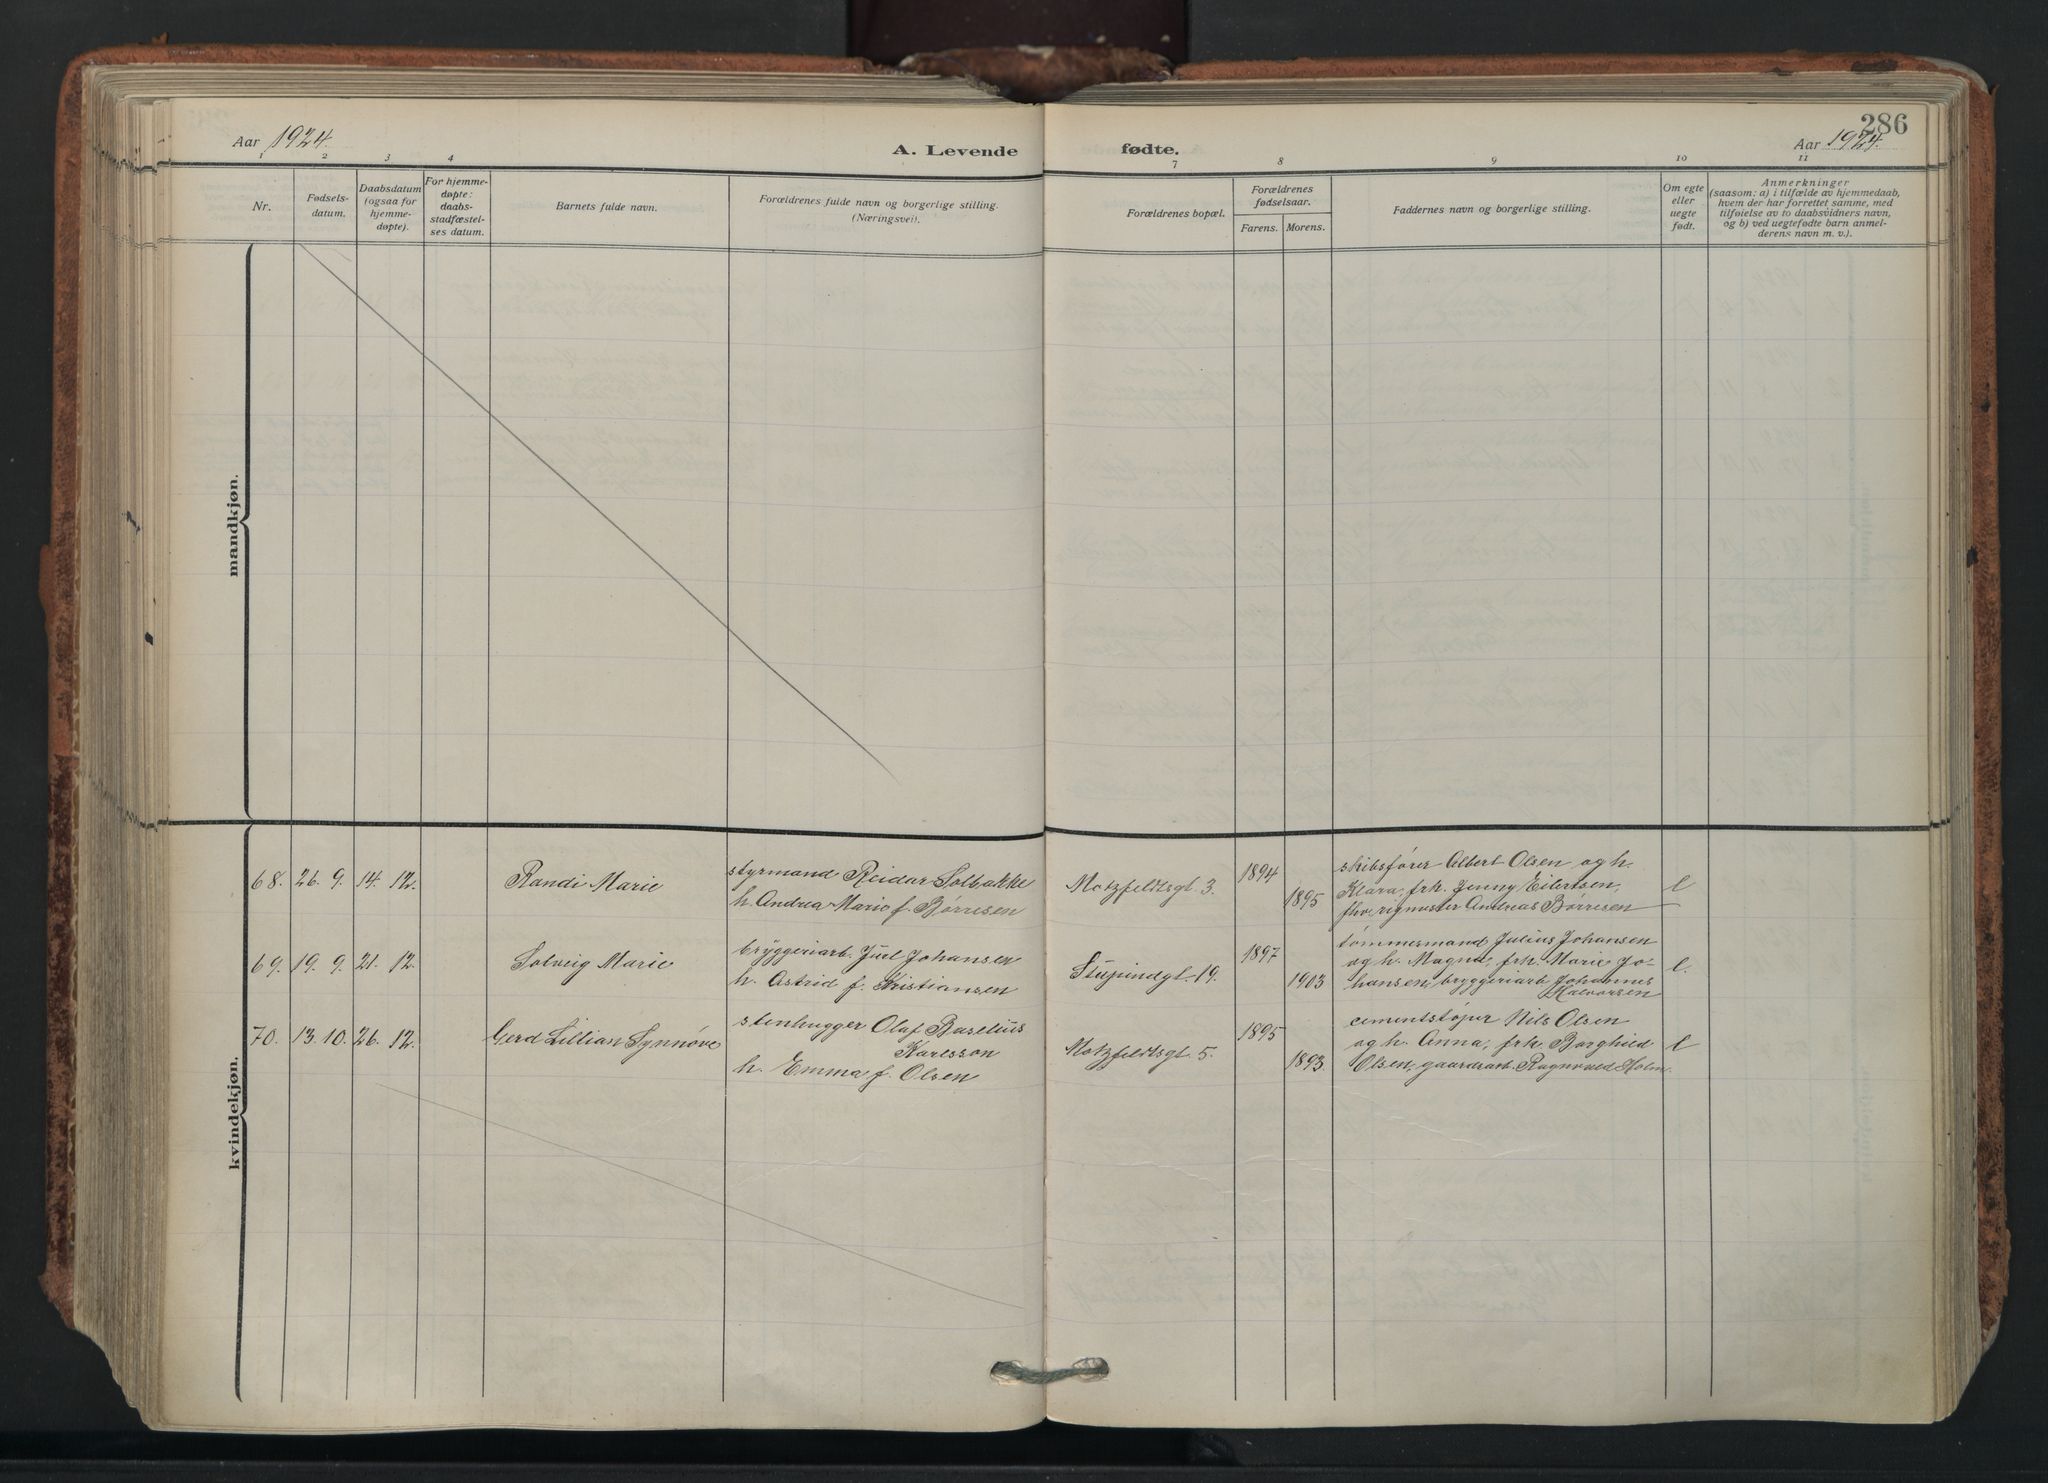 286
Aar 1924.
A. Levende fødte.
Aar 1924.
1 2 3 4 7 8 9 10 11
Nr.
Fødsels-
datum.
Daabsdatum
(ogsaa for
hjemme-
døpte).
For hjemme-
døpte:
daabs-
stadfæstel-
ses datum.
Barnets fulde navn.
Forældrenes fulde navn og borgerlige stilling.
(Næringsvei).
Forældrenes bopæl.
Forældrenes
fødselsaar.
Farens. Morens.
Faddernes navn og borgerlige stilling.
Om egte
eller
uegte
født.
Anmerkninger
(saasom: a) i tilfælde av hjemmedaab,
hvem der har forrettet samme, med
tilføielse av to daabsvidners navn,
og b) ved uegtefødte barn anmel-
derens navn m. v.).
mandkjøn.
kvindekjøn.
68. 26. 9. 14. 12. Randi Marie
styrmand Reidar Solbakke
h. Andrea Marie f. Børresen
Motzfeldtsgt. 3.
1894
1895
skibsfører Albert Olsen og h.
Klara, frk. Jenny Eilertsen,
Andreas Børresen
69. 19. 9. 21. 12. Solveig Marie
bryggeriarb. Juel Johansen
h. Astrid f. Kristiansen
Stupindgt. 19.
1897
1903
tømmermand Julius Johansen
og h. Magna, frk. Marie Jo-
hansen, bryggeriarb. Johannes
Halvorsen
70. 13. 10. 26. 12. Gerd Lillian Synnøve
stenhugger Olaf Baselius
Karlsson
h. Emma f. Olsen
Motzfeldtsgt. 5.
1895
1893.
cementstøper Nils Olsen
og h. Anna, frk. Borghild
Olsen, gaardsarb. Ragnvald Holm.